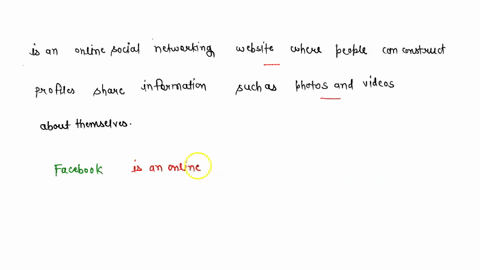 is an online social networking website where people can construct
profiles share information such as photos and videos
about themselves.
Facebook is an online